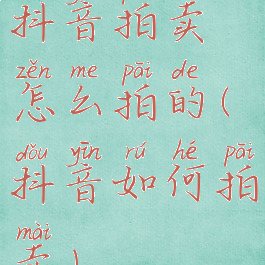 抖音拍卖
zěn me pāi de
怎么拍的(
dǒu yīn rú hé pāi
抖音如何拍
mài
卖)